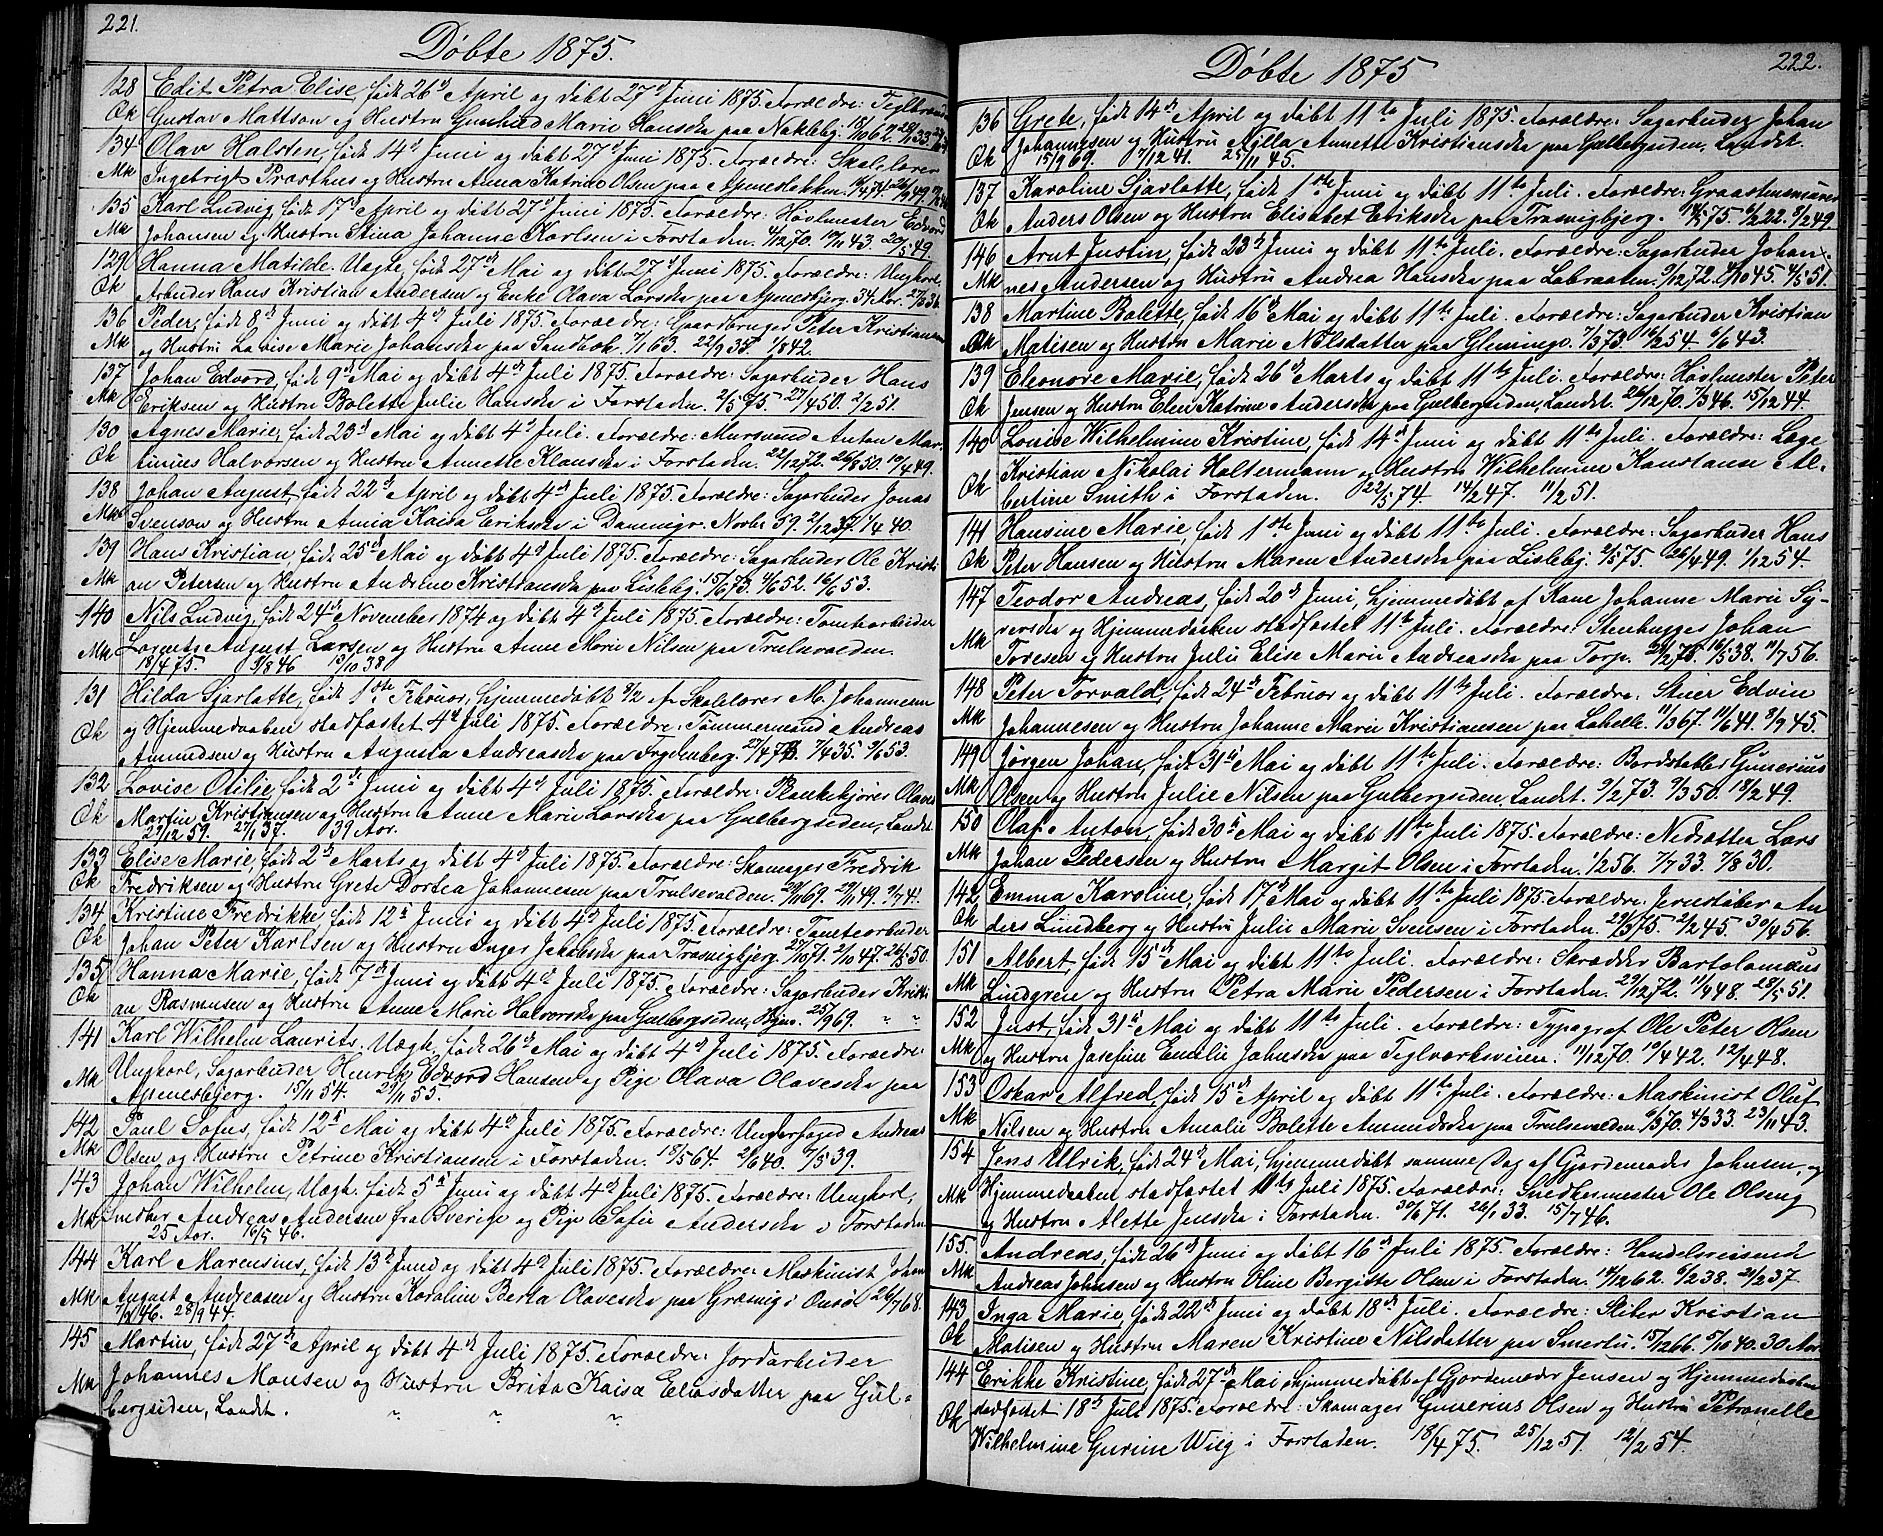 221.
Døbte 1875.
128 Edit Petra Elise, født 26d April og døbt 27d Juni 1875. Forældre:
Qk Gustav Mattson og Hustru Gunhild Marie Hansdtr paa Nabbbg.
134 Olav Halsten, født 14d Juni og døbt 27d Juni 1875. Forældre: Skolelærer
Mk Ingebrigt Præsthus og Hustru Anna Katrine Olsen paa Apenesløkken.
135 Karl Ludvig, født 17d April og døbt 27d Juni 1875. Forældre: Høvlmester Edvard
Mk Johansen og Hustru Stina Johanne Karlsen i Forstaden. 4/12 70. 19/11 43. 20/5 49.
129 Hanna Matilde. Uægte, født 27de Mai og døbt 27d Juni 1875. Forældre: Ungkarl,
Qk Arbeider Hans Kristian Andersen og Enke Olava Larsdtr paa Apenesbjerg. 34 Aar.
136 Peder, født 8d Juni og døbt 4d Juli 1875. Forældre: Gaardbruger Peter Kristiansen
Mk og Hustru Lovise Marie Johansdtr paa Sandbæk. 7/1 63. 22/9 38. 1/8 42.
137 Johan Edvard, født 9d Mai og døbt 4d Juli 1875. Forældre: Sagarbeider Hans
Mk Eriksen og Hustru Bolette Julie Hansdtr i Forstaden. 2/5 75. 27/4 50. 2/2 51.
130 Agnes Marie, født 23d Mai og døbt 4d Juli. Forældre: Mursvend Anton Mar-
Qk tinius Halvorsen og Hustru Annette Klausdtr i Forstaden. 22/12 72. 26/8 50. 19/4 49.
138 Johan August, født 22d April og døbt 4d Juli 1875. Forældre: Sagarbeider Jonas
Mk Svenson og Hustru Anna Kaisa Eriksdtr i Damnigr. Novbr 59. 2/12 37. 1/4 40.
139 Hans Kristian, født 25d Mai og døbt 4d Juli 1875. Forældre: Sagarbeider Ole Kristi-
Mk an Petersen og Hustru Andrine Kristiansdtr paa Lisleby. 15/6 73. 4/6 52. 16/6 53.
140 Nils Ludvig, født 24d November 1874 og døbt 4d Juli 1875. Forældre: Tomtearbeider
Mk Lorents August Larsen og Hustru Anne Marie Nilsen paa Trulsevolden.
18/4 75. 3/8 46 13/10 38.
131 Hilda Sjarlotte, født 1ste Februar, hjemmedøbt 8/2 af Skolelærer M. Johannesen
Qk og Hjemmedaaben stadfæstet 4d Juli 1875. Forældre: Tømmermand Andreas
Amundsen og Hustru Augusta Andreasdtr paa Ingelsberg. 27/4 73. 7/4 35. 9/6 53.
132 Lovise Otilie, født 2de Juni og døbt 4d Juli 1875. Forældre: Plankekjører Olaves
Qk Martin Kristiansen og Hustru Anne Marie Larsdtr paa Gulbergsiden, Landet.
29/12 59. 27/1 37. 39 Aar.
133 Elise Marie, født 2d Marts og døbt 4d Juli 1875. Forældre: Skomager Fredrik
Qk Fredriksen og Hustru Grete Dortea Johannesen paa Trulsevolden. 20/11 69. 29/11 49. 9/7 41.
134 Kristine Fredrikke født 12d Juni og døbt 4d Juli 1875. Forældre: Tomtearbeider
Qk Johan Peter Karlsen og Hustru Inger Jakobsdtr paa Trosvigbjerg. 27/10 71. 2/10 47. 26/5 50.
135 Hanna Marie, født 7de Juni og døbt 4d Juli 1875. Forældre: Sagarbeider Kristi-
Qk an Rasmusen og Hustru Anne Marie Halvorsdtr paa Gulbergsiden, Byen. 23/9 69. " "
141 Karl Wilhelm Laurits. Uægte, født 26d Mai og døbt 4d Juli 1875. Forældre:
Mk Ungkarl, Sagarbeider Henrik Edvard Hansen og Pige Olava Olavesdtr paa
Apenesbjerg. 15/11 54. 25/11 53.
142 Paul Sofus, født 12d Mai og døbt 4d Juli 1875. Forældre: Underfoged Andreas
Mk Olsen og Hustru Petrine Kristiansen i Forstaden. 18/5 64. 2/6 40. 9/5 39.
143 Johan Wilhelm, Uægte. født 5d Juni og døbt 4d Juli 1875. Forældre: Ungkarl,
Mk Snedker Andreas Andersen fra Sverige og Pige Sofie Andersdtr i Forstaden
25 Aar. 16/5 46.
144 Karl Marensius, født 13d Juni og døbt 4d Juli 1875. Forældre: Maskinist Johan
Mk August Andreasen og Hustru Karoline Berta Olavesdtr paa Græsvig i Onsø. 26/7 68.
7/2 46. 28/9 44.
145 Martin, født 27de April og døbt 4d Juli 1875. Forældre: Jordarbeider
Mk Johannes Monsen og Hustru Brita Kaisa Eliasdatter paa Gul-
bergsiden, Landet. " " "
222.
Døbte 1875
136 Grete, født 14d April og døbt 11te Juli 1875. Forældre: Sagarbeider Johan
Qk Johannesen og Hustru Milla Annette Kristiansdtr paa Gulbergsiden, Landet.
15/9 69. 7/12 41. 25/11 45.
137 Karoline Sjarlotte, født 1ste Juni og døbt 11te Juli. Forældre: Graastensminør
Qk Anders Olsen og Hustru Elisabet Eriksdtr paa Trosvigbjerg. 14/5 75. 6/2 22. 9/2 49.
146 Arnt Justin, født 23d Juni og døbt 11te Juli. Forældre: Sagarbeider Johan-
Mk nes Andersen og Hustru Andrea Hansdtr paa Labraaten. 9/12 72. 4/10 45. 4/5 51.
138 Martine Bolette, født 16d Mai og døbt 11te Juli. Forældre: Sagarbeider Kristian
Qk Matisen og Hustru Marie Nilsdatter paa Glemminge. 7/3 73. 10/2 54. 6/6 43.
139 Eleonore Marie, født 26d Marts og døbt 11te Juli. Forældre: Høvlmester Peter
Qk Jensen og Hustru Elen Katrine Andersdtr paa Gulbergsiden, Landet. 26/12 70. 1/3 46. 15/12 44.
140 Louise Wilhelmine Kristine, født 14d Juni og døbt 11te Juli. Forældre: Læge
Qk Kristian Nikolai Holtermann og Hustru Wilhelmine Konstanse Al-
bertine Smith i Forstaden. 22/5 74. 14/2 47. 11/2 51.
141 Hansine Marie, født 1ste Juni og døbt 11te Juli. Forældre: Sagarbeider Hans
Qk Peter Hansen og Hustru Maren Andersdtr paa Lisleby. 2/5 75. 26/4 49. 1/12 54.
147 Teodor Andreas, født 20d Juni, hjemmedøbt af Kone Johanne Marie Sy-
Mk versdtr og Hjemmedaaben stadfæstet 11te Juli. Forældre: Stenhugger Johan
Toresen og Hustru Julie Elise Marie Andreasdtr paa Torp. 20/2 75. 16/5 38. 11/7 56.
148 Peter Torvald, født 24d Februar og døbt 11te Juli. Forældre: Stuer Edvin
Mk Johannesen og Hustru Johanne Marie Kristiansen paa Lahelle. 11/3 67. 11/6 41. 8/9 45.
149 Jørgen Johan, født 31d Mai og døbt 11te Juli. Forældre: Bordstabler Gunerius
Mk Olsen og Hustru Julie Nilsen paa Gulbergsiden, Landet. 9/2 73. 9/3 50. 18/2 49.
150 Olaf Anton, født 30d Mai og døbt 11te Juli 1875. Forældre: Nedsætter Lars
Mk Johan Pedersen og Hustru Margit Olsen i Forstaden. 1/2 56. 7/7 33. 7/8 30.
142 Emma Karoline, født 17d Mai og døbt 11te Juli 1875. Forældre: Jernstøber An-
Qk ders Lundberg og Hustru Julie Marie Svensen i Forstaden. 29/3 75. 2/2 45. 30/4 56.
151 Albert, født 15d Mai og døbt 11te Juli. Forældre: Skrædder Bartolomæus
Mk Lindgren og Hustru Petra Marie Pedersen i Forstaden. 29/12 72. 11/4 48. 28/5 51.
152 Just, født 31d Mai og døbt 11te Juli. Forældre: Typograf Ole Peter Olsen
Mk og Hustru Josefine Emilie Johnsdtr paa Teglværksveien. 11/12 70. 19/4 42. 12/4 48.
153 Oskar Alfred, født 15d April og døbt 11te Juli. Forældre: Maskinist Oluf
Mk Nilsen og Hustru Amalie Bolette Amundsdtr paa Trulsevolden. 6/3 70. 4/3 33. 23/11 43.
154 Jens Ulrik, født 24d Mai, hjemmedøbt samme Dag af Gjordemoder Johnsen, og
Mk Hjemmedaaben stadfæstet 11te Juli 1875. Forældre: Snedkermester Ole Olsen
og Hustru Alette Jensdtr i Forstaden. 30/6 71. 26/1 33. 15/7 46.
155. Andreas, født 26d Juni og døbt 16d Juli 1875. Forældre: Handelsreisende
Mk Andreas Johnsen og Hustru Oline Bergitte Olsen i Forstaden. 18/12 62. 6/2 38. 21/2 37.
143 Inga Marie, født 22d Juni og døbt 18d Juli. Forældre: Sliber Kristian
Qk Matisen og Hustru Maren Kristine Nilsdatter paa Smertu. 15/12 66. 5/10 40. 30 Aar
144 Erikke Kristine, født 27d Mai, hjemmedøbt af Gjordemoder Jensen og Hjemmedaaben
Qk stadfæstet 18d Juli 1875. Forældre: Skomager Gunerius Olsen og Hustru Petronelle
Wilhelmine Gurine Wiig i Forstaden. 18/4 75. 25/12 51. 12/2 54.